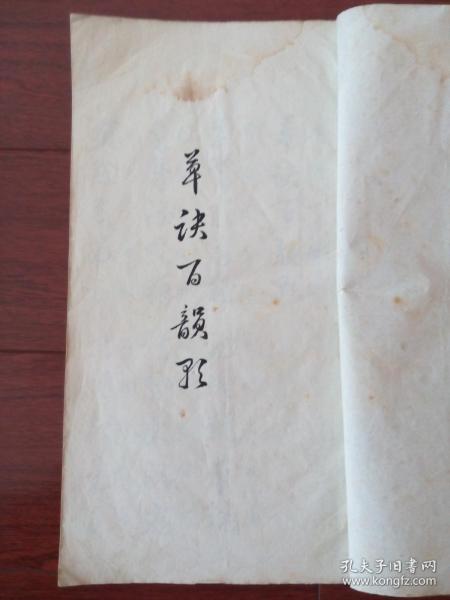 草诀百韻歌
孔夫子旧书网
www.kongfz.com